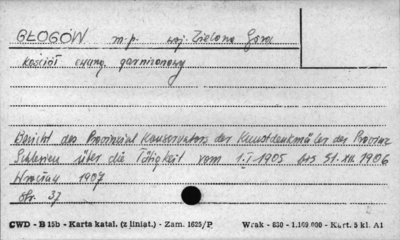 GŁOGÓW m.p. woj. Zielona Gora
kościół ewang. garnizonowy
Bericht des Provinzial Konservators der Kunstdenkmäler der Provinz
Schlesien über die Tätigkeit vom 1.I.1905 bis 31.XII.1906
Wrocław 1907
str. 37
CWD - B 15b - Karta katal. (z liniat.) - Zam. 1625/P. Wrak - 830 - 1.100 000 - Kart. 5 kl. A1